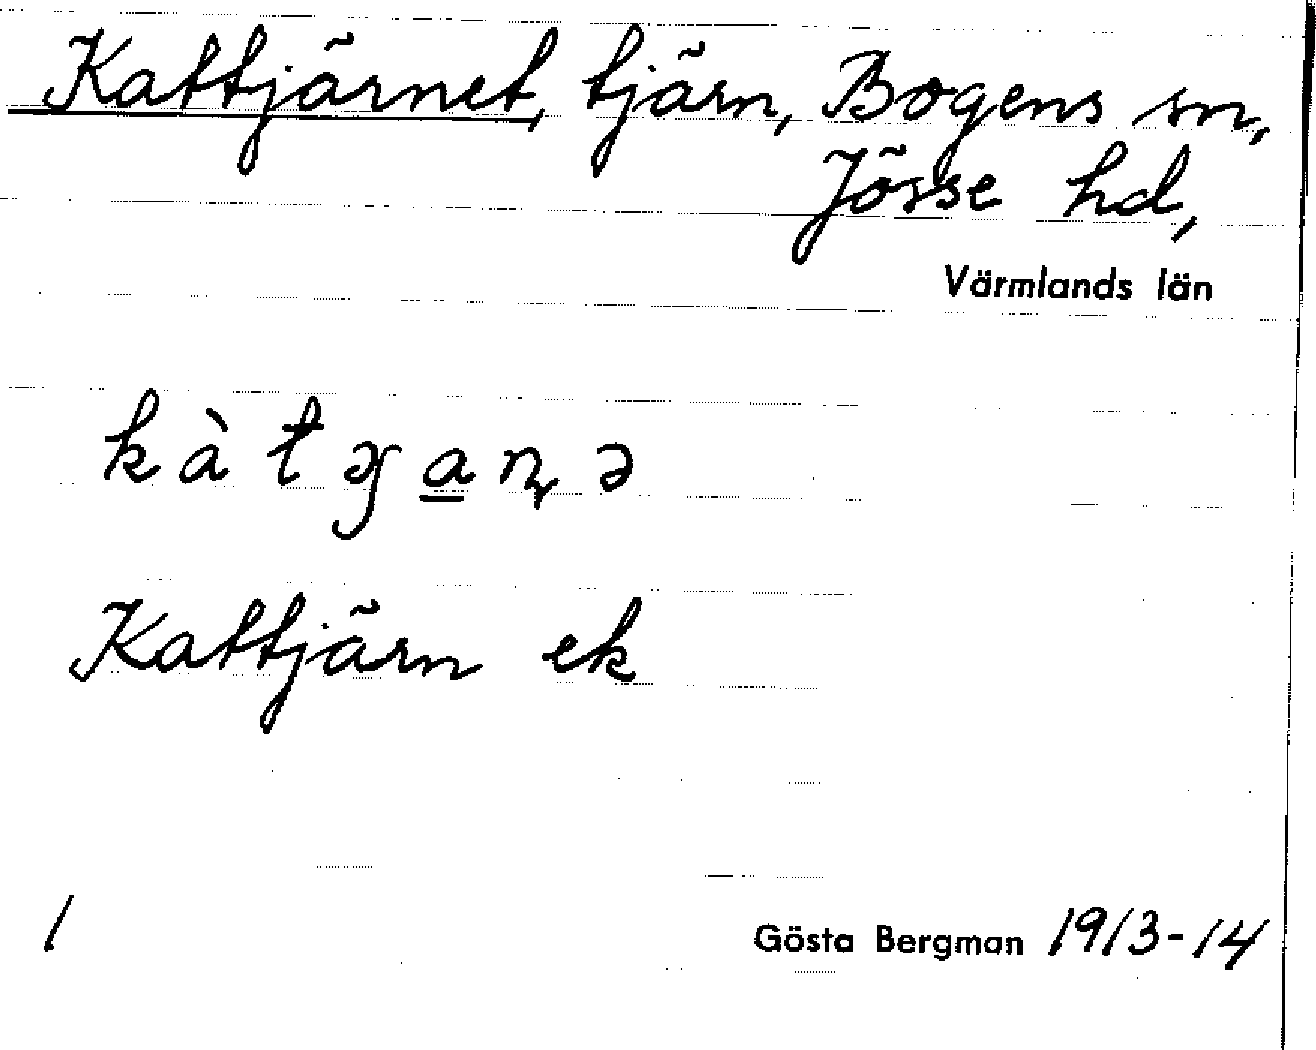 Kattjärnet, tjärn, Bogens sn,
Jösse hd,
Värmlands län
Kattjärn ek
1
Gösta Bergman 1913-14